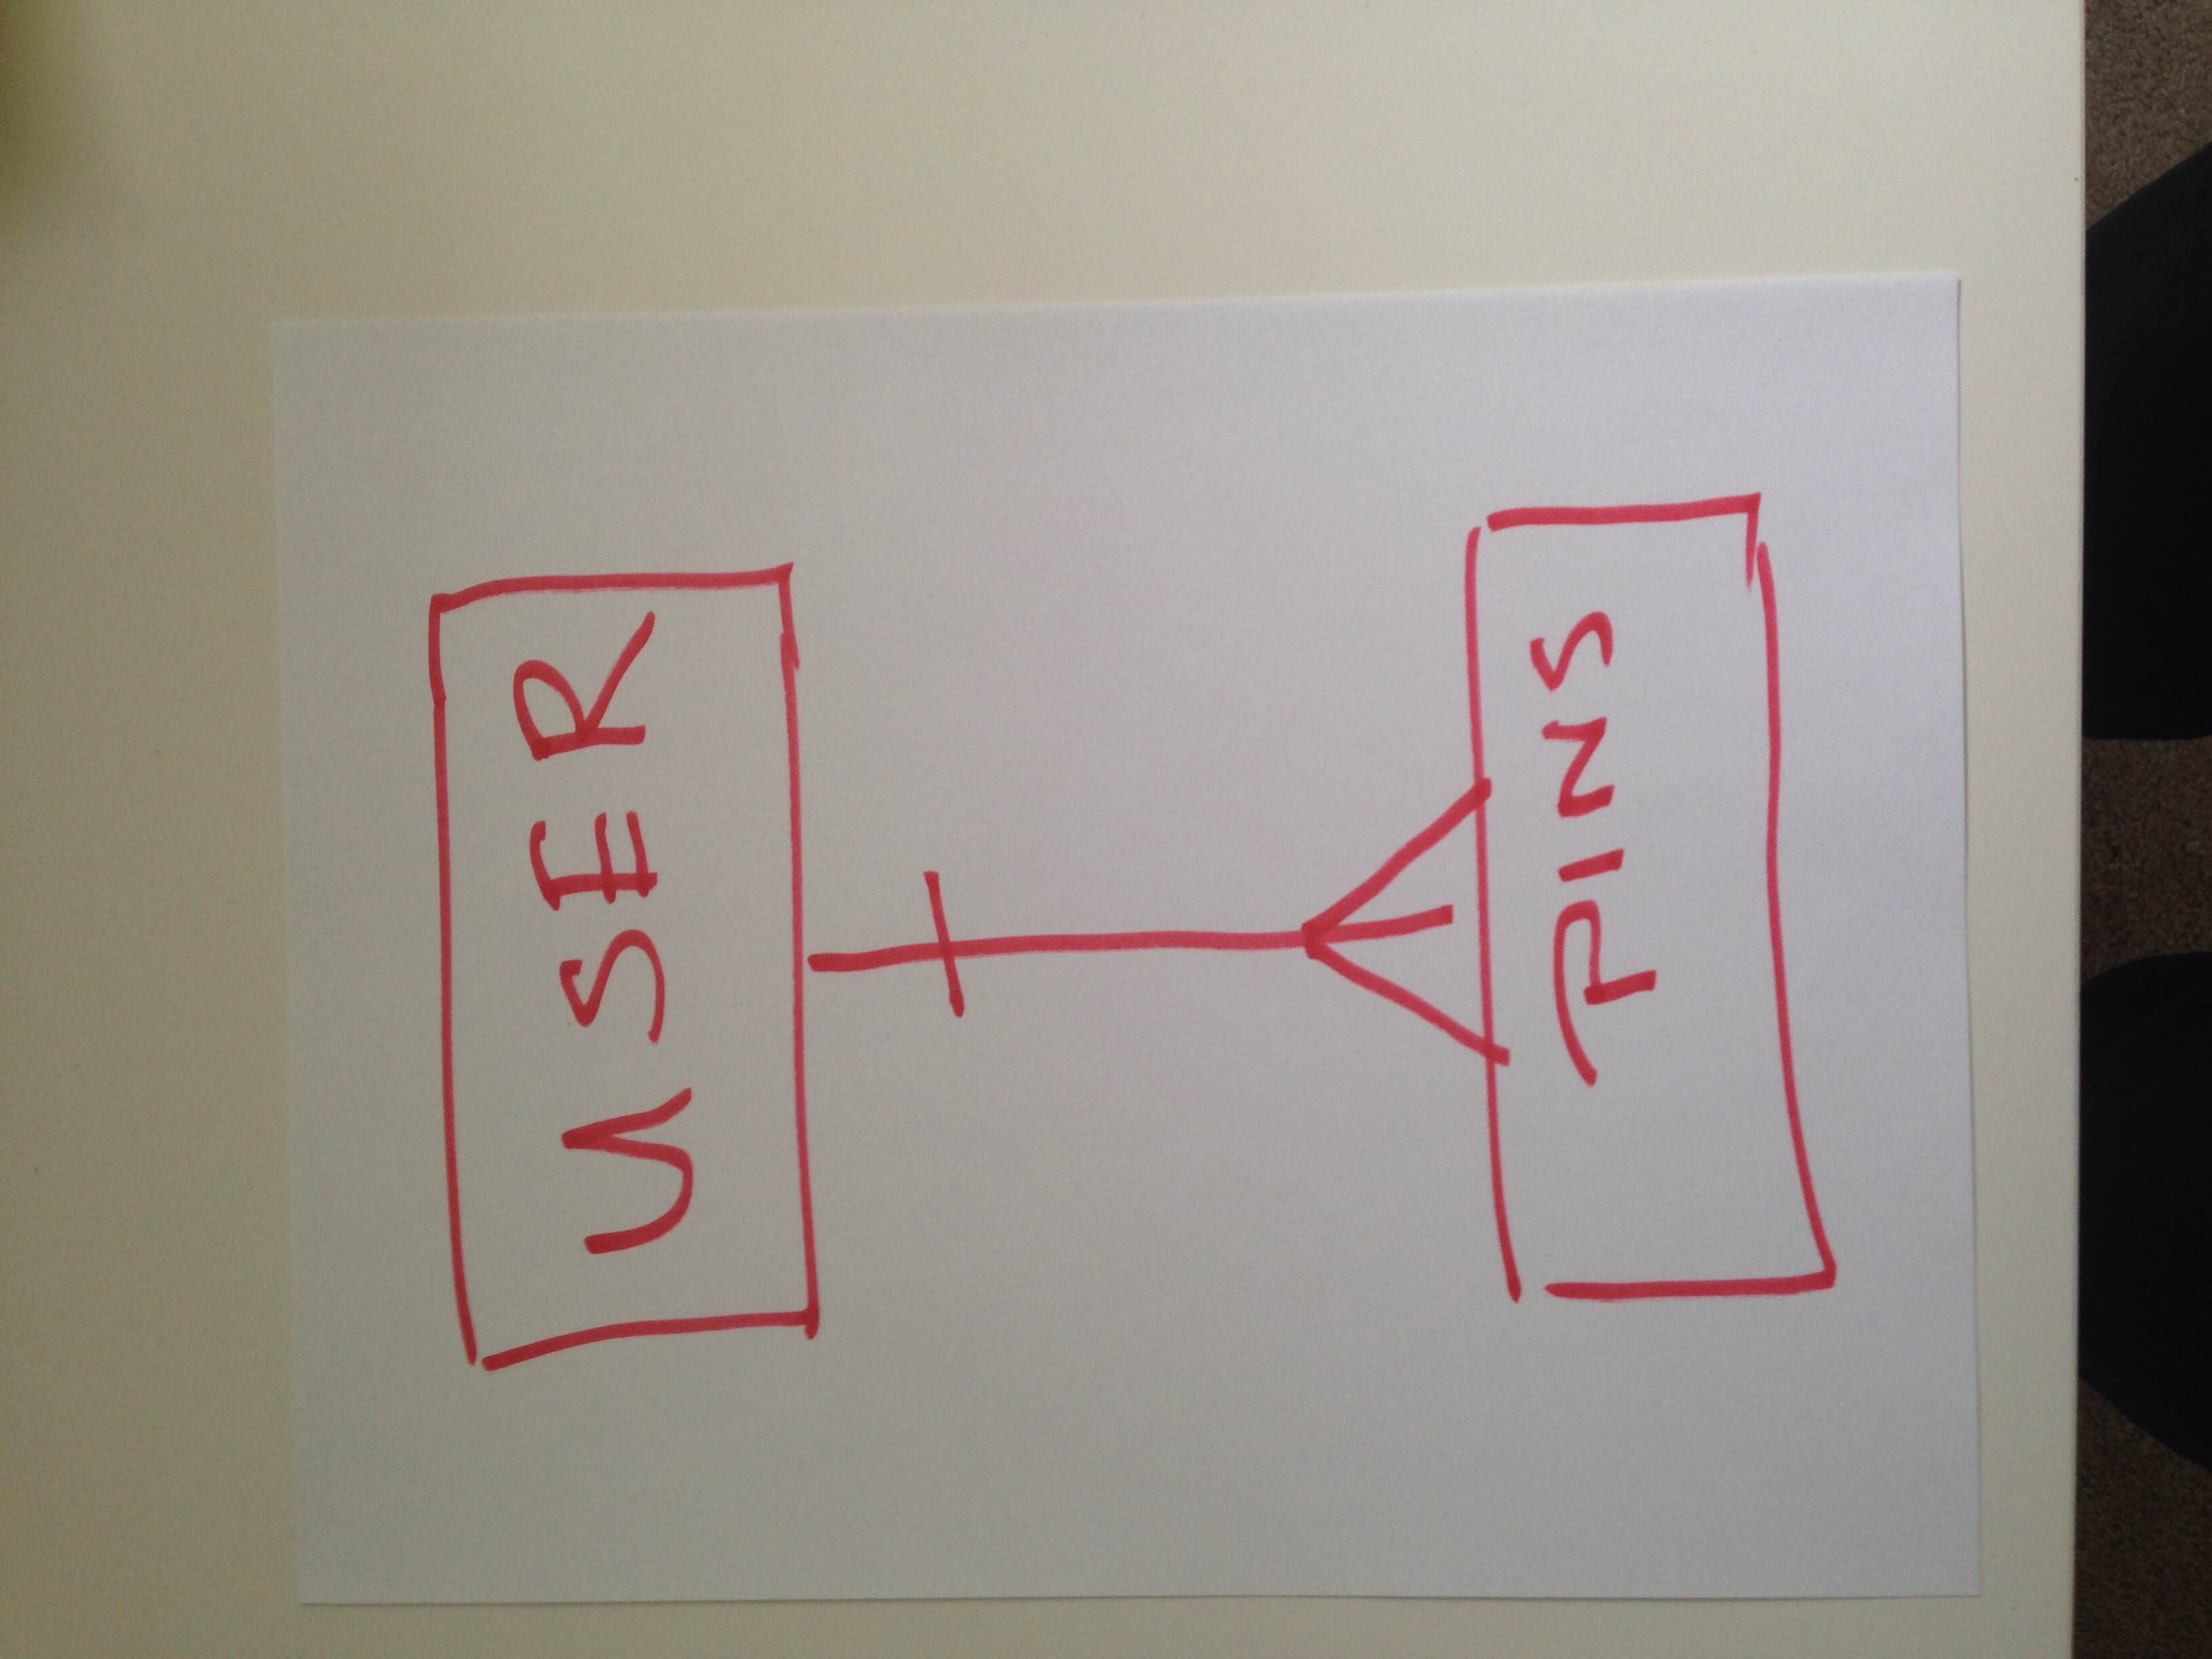 USER
PINS